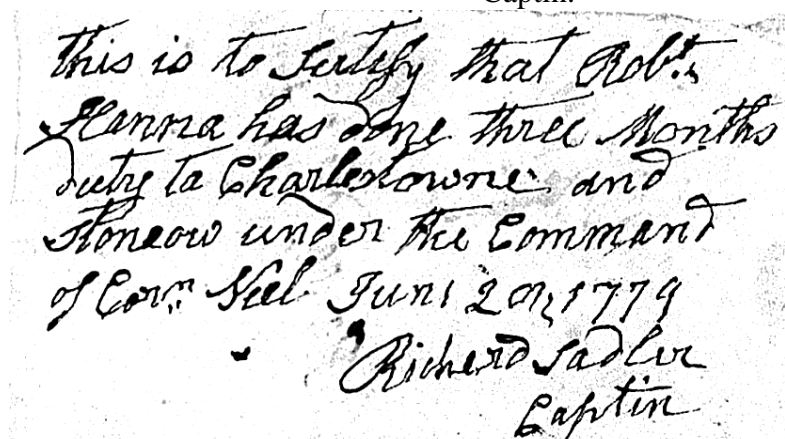 Captin.
this is to Sertify that Robt.
Hanna has done three Months
duty to Charlestowne and
Stoneow under the Command
of Corn. Neel June 20th 1779
Richerd Sadler
Captin